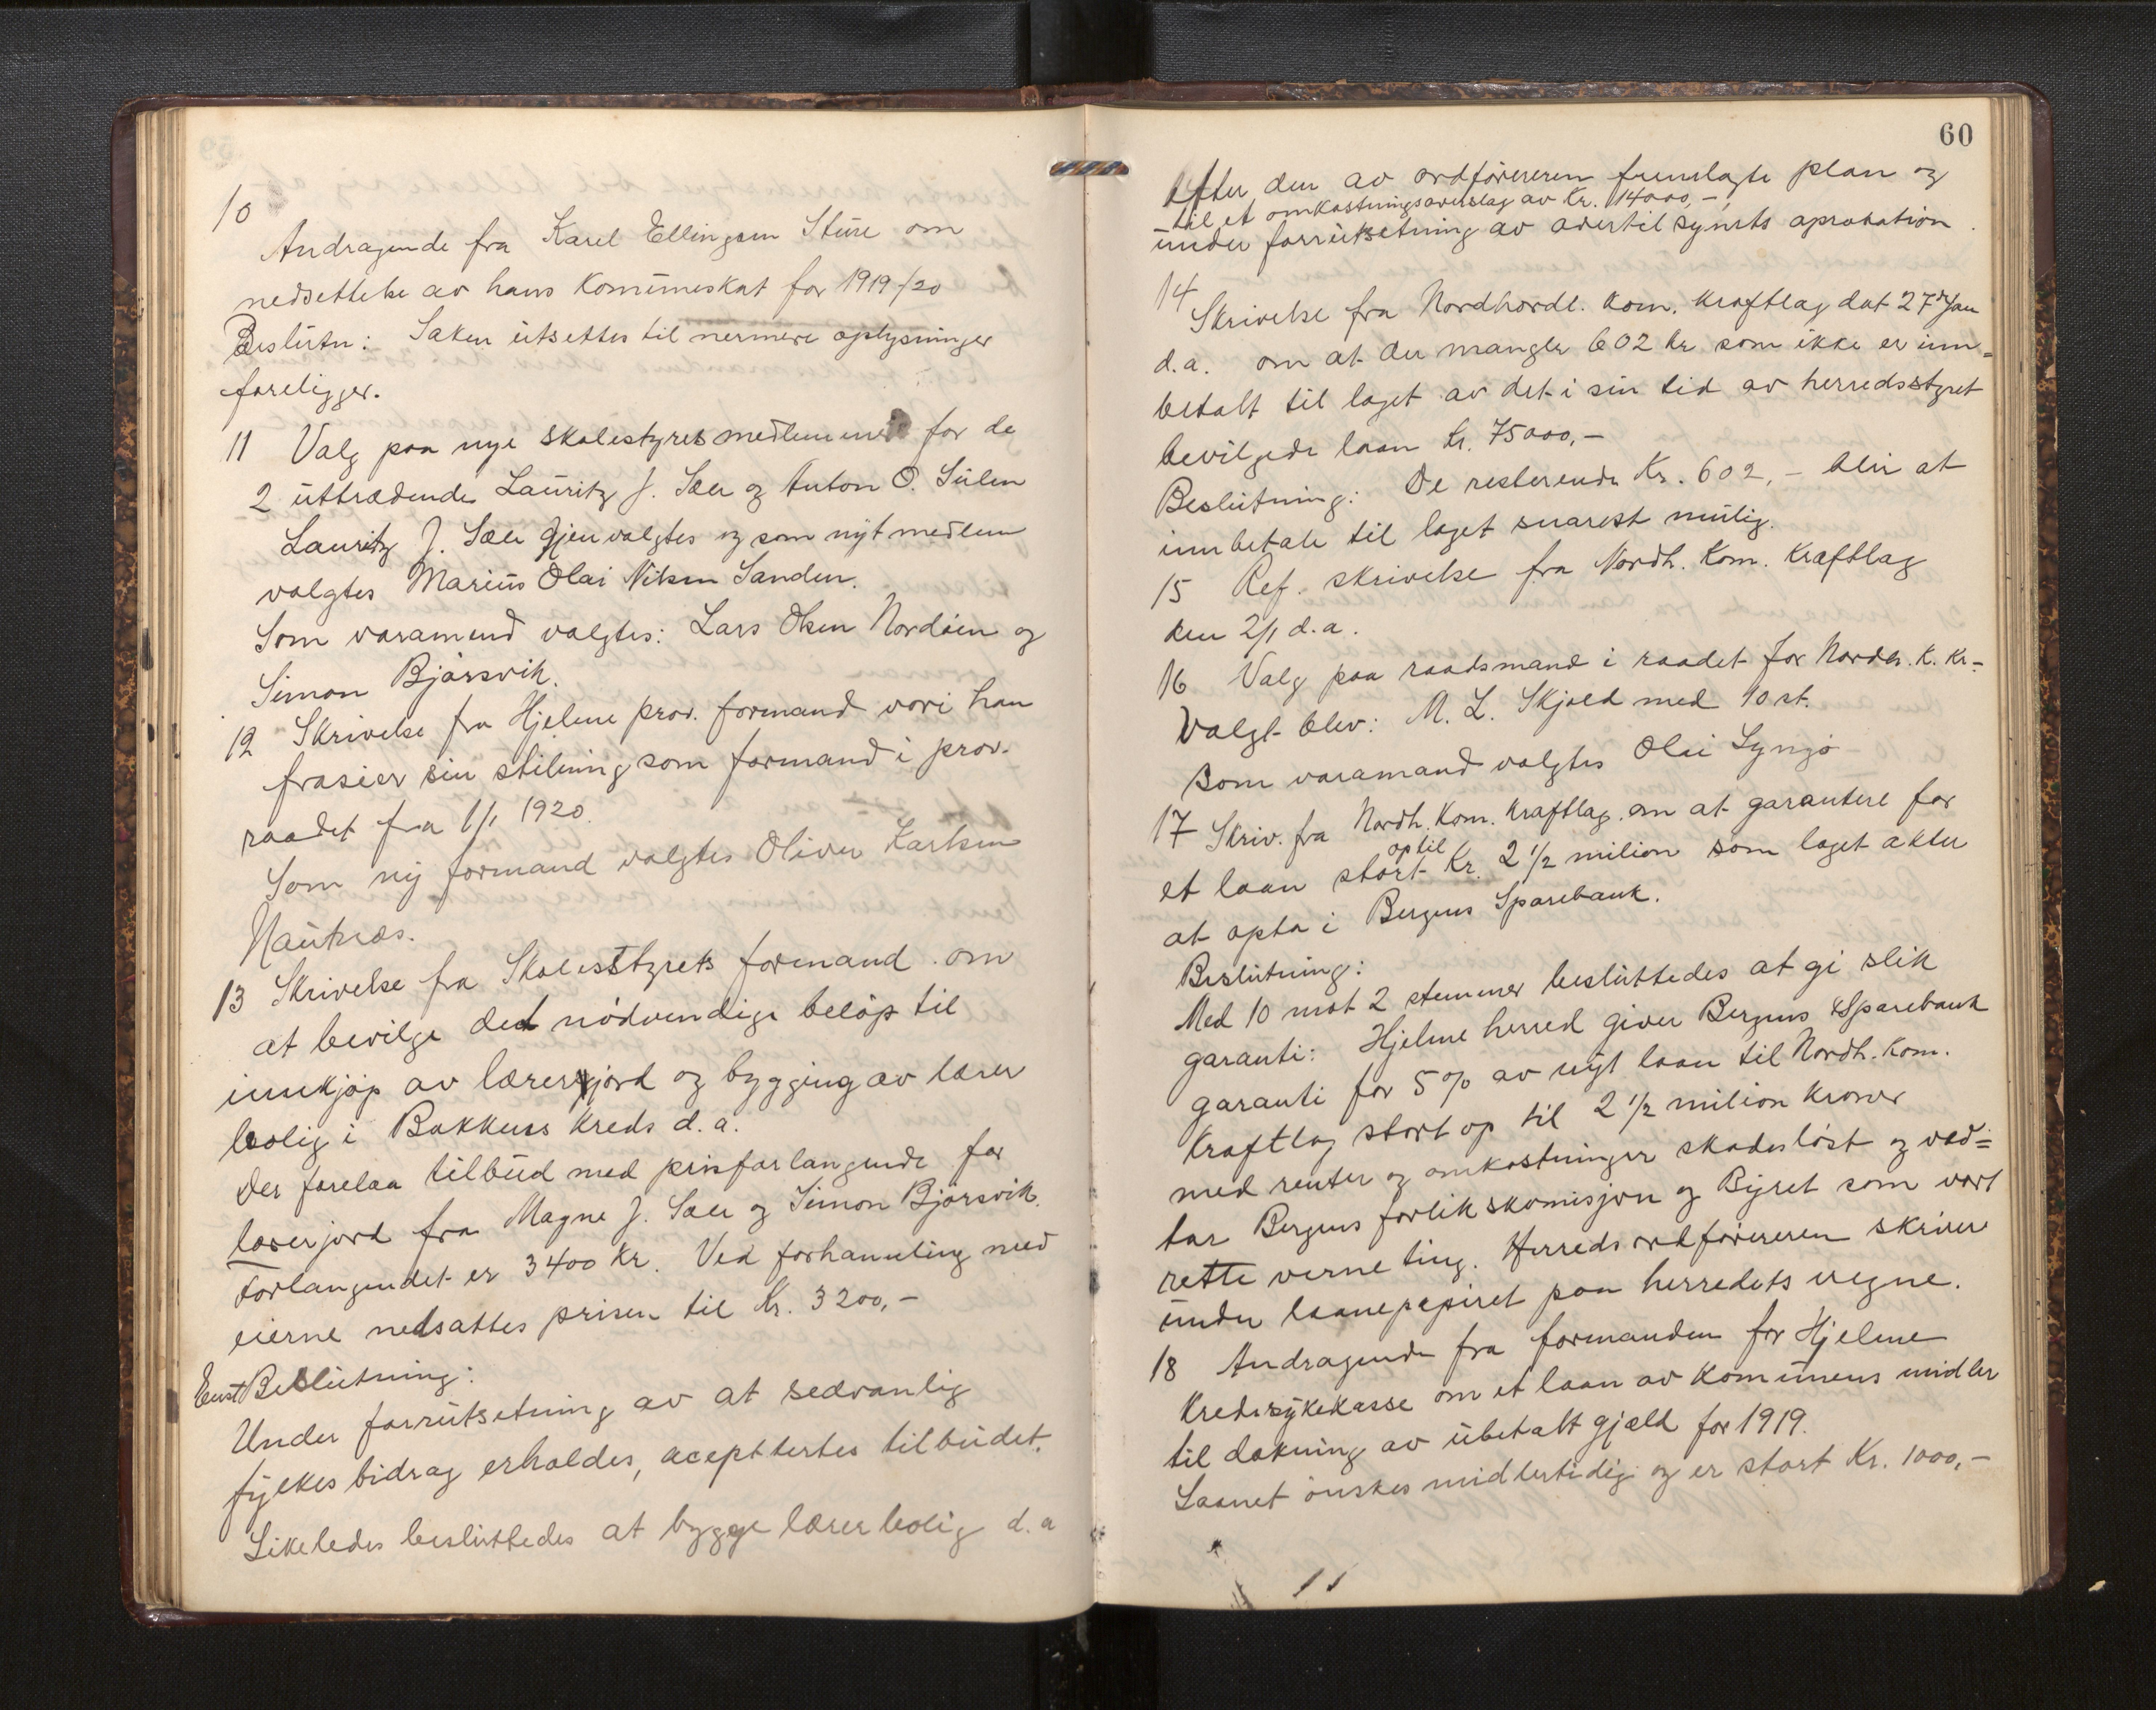 10
Andragende fra Karel Ellingsen Sture om
nedsettelse av hans Kommuneskat for 1919/20
Beslutn: Saken utsettes til nermere oplysninger
foreligger.
11 Valg paa nye skolestyresmedlemmer for de
2 uttrædende Lauritz J. Sæle og Anton O. Sulen
Lauritz J. Sæle gjenvalgtes og som nyt medlem
valgtes Marius Olai Nilsen Sanden.
Som varamend valgtes: Lars Olsen Nordöen og
Simon Bjørsvik.
12 Skrivelse fra Hjelme prov. formand vori han
frasier sin stilning som formand i prov.
raadet fra 1/1 1920.
Som ny formand valgtes Oliver Larsen
Nautnes.
13 Skrivelse fra Skolestyrets formand om
at bevilge det nödvendige belöp til
innkjöp av lærerjord og bygging av lærer
bolig i Bakkøss Kreds d. a.
Der forelaa tilbud med prisforlangende for
lærerjord fra Magne J. Sæle og Simon Bjørsvik.
Forlangendet er 3400 Kr. Ved forhanling med
eierne nedsattes prisen til Kr. 3200,-
Enst Beslutning:
Under forrutsetning av at sedvanlig
fylkesbidrag erholdes, acepttertes tilbudet.
Likeledes besluttedes at bygge lærerbolig d. a
60
Efter den av ordförereren fremlagte plan og
til et omkostningsoverslag av Kr. 14000,-,
under forrutsetning av overtilsynets aprobation.
14
Skrivelse fra Nordhordl. Kom. Kraftlag dat 27de Jan
d.a. om at der mangler 602 kr som ikke er inn=
betalt til laget av det i sin tid av herredsstyret
bevilgede laan kr. 75000,-
Beslutning: De resterende Kr. 602,- blir at
innbetale til laget snarest mulig.
15 Ref. skrivelse fra Nordh. Kom. Kraftlag
den 2/1 d.a.
16 Valg paa raadsmand i raadet for Nordh. K. Kr-
Valgt blev: M. L. Skjold med 10 st.
Som varamand valgtes Olai Syngö
17 Skriv. fra Nordh. Kom. Kraftlag om at garantere for
et laan stort optil Kr. 2 1/2 milion som laget akter
at opta i Bergens Sparebank.
Beslutning:
Med 10 mot 2 stemmer besluttedes at gi slik
garanti: Hjelme herred giver Bergens Sparebank
garanti for 5% av nyt laan til Nordh. Kom.
Kraftlag stort op til 2 1/2 milion kroner
med renter og omkostninger skadesløst og ved=
tar Bergens forlikskomisjon og Byret som vort
rette verneting. Herredsordförereren skriver
under laanepapiret paa herredets vegne.
18 Andragende fra formanden for Hjelme
Kredssykekasse om et laan av Komunens midler
til dækning av ubetalt gjæld for 1919.
Laanet önskes midlertidig og er stort Kr. 1000,-